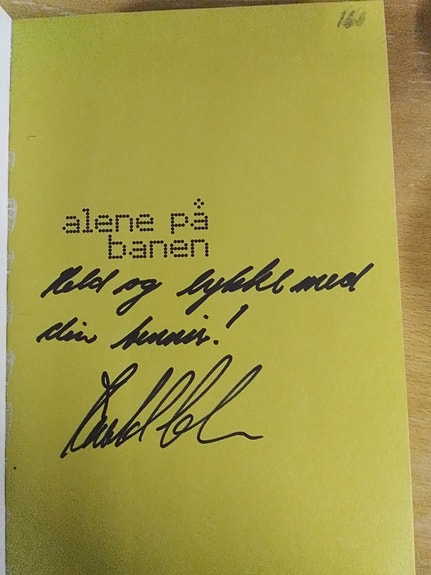 160
alene på
banen
Held og lykke med
din tennis!